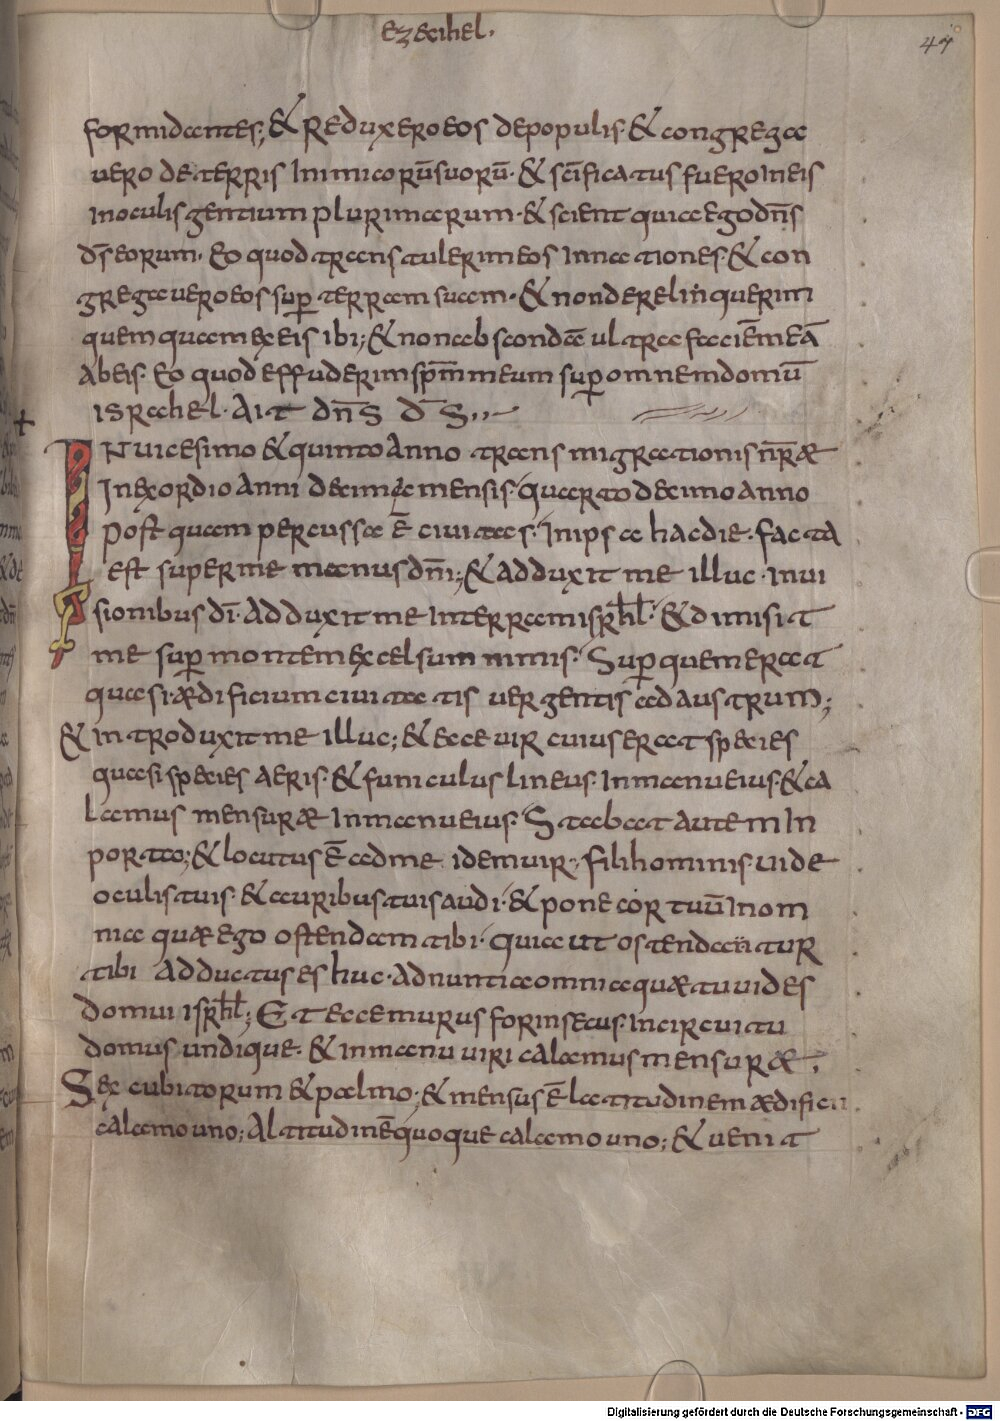 ezechiel.
47
formidantes; & reduxero eos de populis. & congrega
uero de terris inimicorū suorū. & scīficatus fuero in eis
in oculis gentium plurimarum. & scient quia ego dn̄s
d̄s eorum. Eo quod transtulerim eos in nationes. & con
gregauero eos sup̱ terram suam. & non derelinquerim
quemquam ex eis ibi; & non abscondā ultra faciēm eā
ab eis. Eo quod effuderim sp̄m meum sup̱ omnem domū
israhel. Ait dn̄s d̄s
IN uicesimo & quinto anno transmigrationis nr̄æ
In exordio anni decimæ mensis. quarto decimo anno
post quam percussa ē ciuitas. In ipsa hac die. facta
est super me manus dn̄i; & adduxit me illuc. In ui
sionibus dī. adduxit me in terram isrħl. & dimisit
me sup̱ montem excelsum nimis. Sup̱ quem erat
quasi ædificium ciuitatis uergentis ad austrum;
& introduxit me illuc; & ecce uir cuius erat species
quasi species aeris. & funiculus lineus. in manu eius. & ca
lamus mensuræ in manu eius. Stabat autem in
porta; & locutus ē ad me idem uir. fili hominis. uide
oculis tuis. & auribus tuis audi. & pone cor tuū in om
nia quæ ego ostendam tibi. quia ut ostendantur
tibi adductus es huc. adnuntia omnia quæ tu uides
domui isrħl; Et ecce murus forinsecus. in circuitu
domus undique. & in manu uiri calamus mensuræ.
Sex cubitorum & palmo. & mensus ē latitudinem ædificii
calamo uno; Altitudinē quoque calamo uno; & uenit
Digitalisierung gefördert durch die Deutsche Forschungsgemeinschaft - DFG